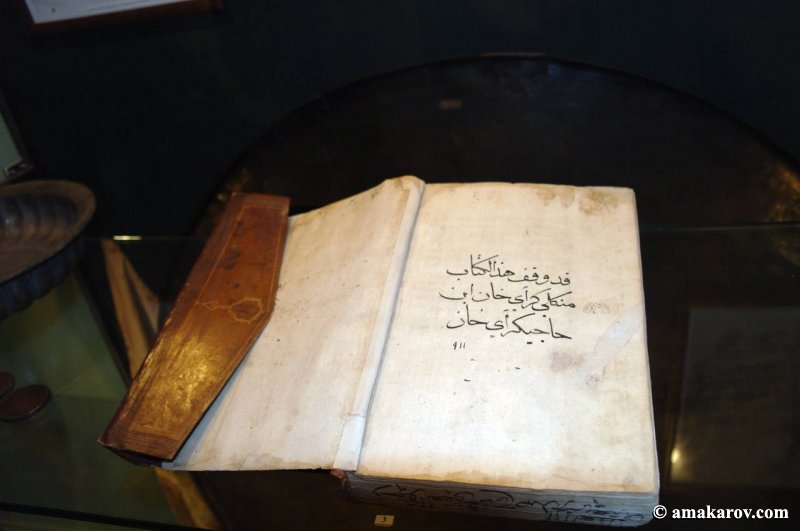 قد وقف هذا الكتاب
منكلي كراي خان ابن
حاجيكراي خان
٩١١
3
© amakarov.com